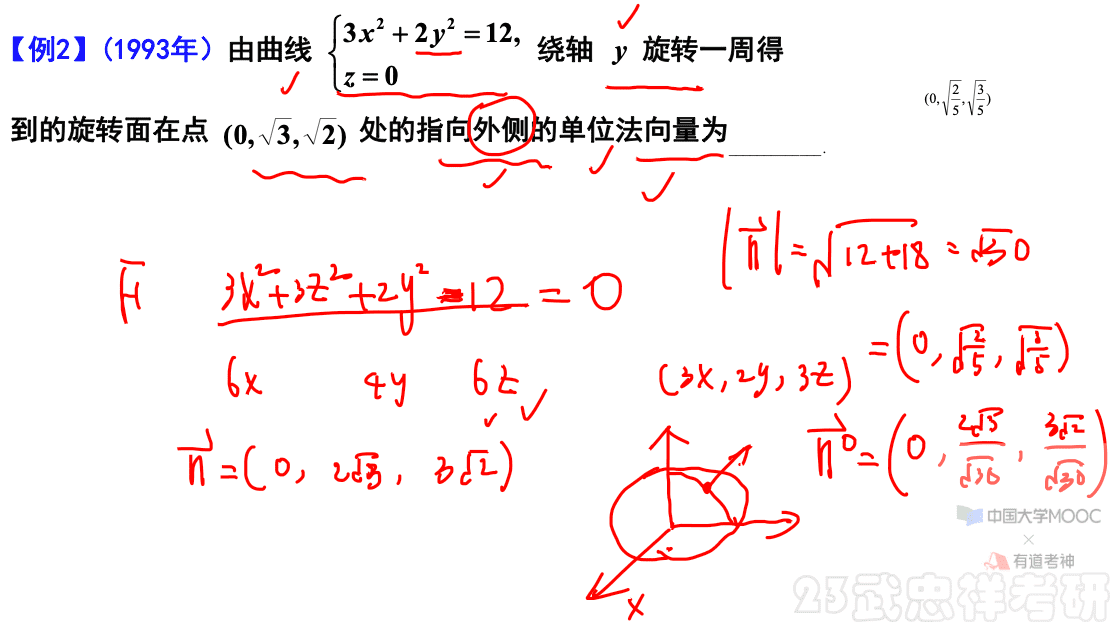 【例2】(1993年) 由曲线 { 3x² + 2y² = 12, z = 0 绕轴 y 旋转一周得
到的旋转面在点 (0, √3, √2) 处的指向外侧的单位法向量为________.
(0, √(2/5), √(3/5))
|n⃗| = √(12+18) = √30
F 3x²+3z²+2y²-12 = 0
= (0, √(2/5), √(3/5))
6x 4y 6z
(3x, 2y, 3z)
n⃗ = (0, 2√3, 3√2)
n⃗⁰ = (0, 2√3/√30, 3√2/√30)
x
中国大学MOOC
×
有道考神
23武忠祥考研